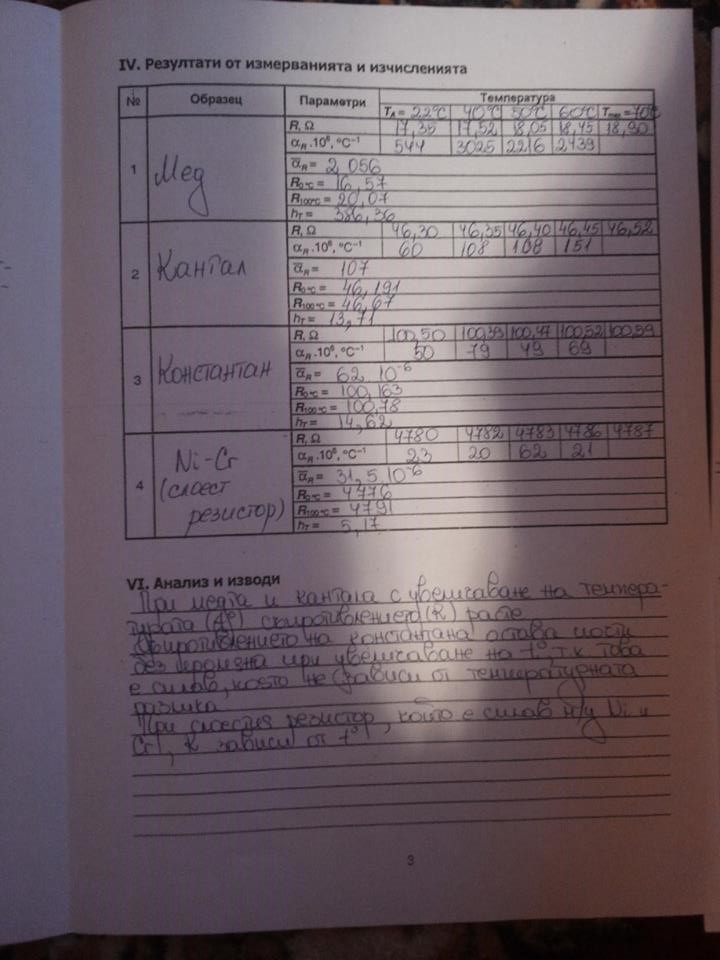 IV. Резултати от измерванията и изчисленията
№ Образец Параметри Температура
T_A = 22°C 40°C 50°C 60°C T_max = 70°C
1 Мед
R, Ω 17,35 17,52 18,05 18,45 18,90
α_R .10⁶, °C⁻¹ 544 3025 2216 2439
α̅_R = 2,056
R_0°C = 16,57
R_100°C = 20,07
h_T = 386,36
2 Кантал
R, Ω 46,30 46,35 46,40 46,45 46,52
α_R .10⁶, °C⁻¹ 60 108 108 151
α̅_R = 107
R_0°C = 46,191
R_100°C = 46,67
h_T = 13,71
3 Константан
R, Ω 100,50 100,39 100,47 100,52 100,59
α_R .10⁶, °C⁻¹ 50 79 49 69
α̅_R = 62.10⁻⁶
R_0°C = 100,163
R_100°C = 100,78
h_T = 14,62
4 Ni-Cr
(слоест
резистор)
R, Ω 4780 4782 4783 4786 4787
α_R .10⁶, °C⁻¹ 23 20 62 21
α̅_R = 31,5.10⁻⁶
R_0°C = 4776
R_100°C = 4791
h_T = 5,17
VI. Анализ и изводи
При медта и кантала с увеличаване на темпера-
турата (t°) съпротивлението (R) расте
Съпротивлението на константана остава почти
без промяна при увеличаване на t°, т.к. това
е сплав, която не зависи от температурната
разлика
При слоестия резистор, който е сплав м/у Ni и
Cr, R зависи от t°
3